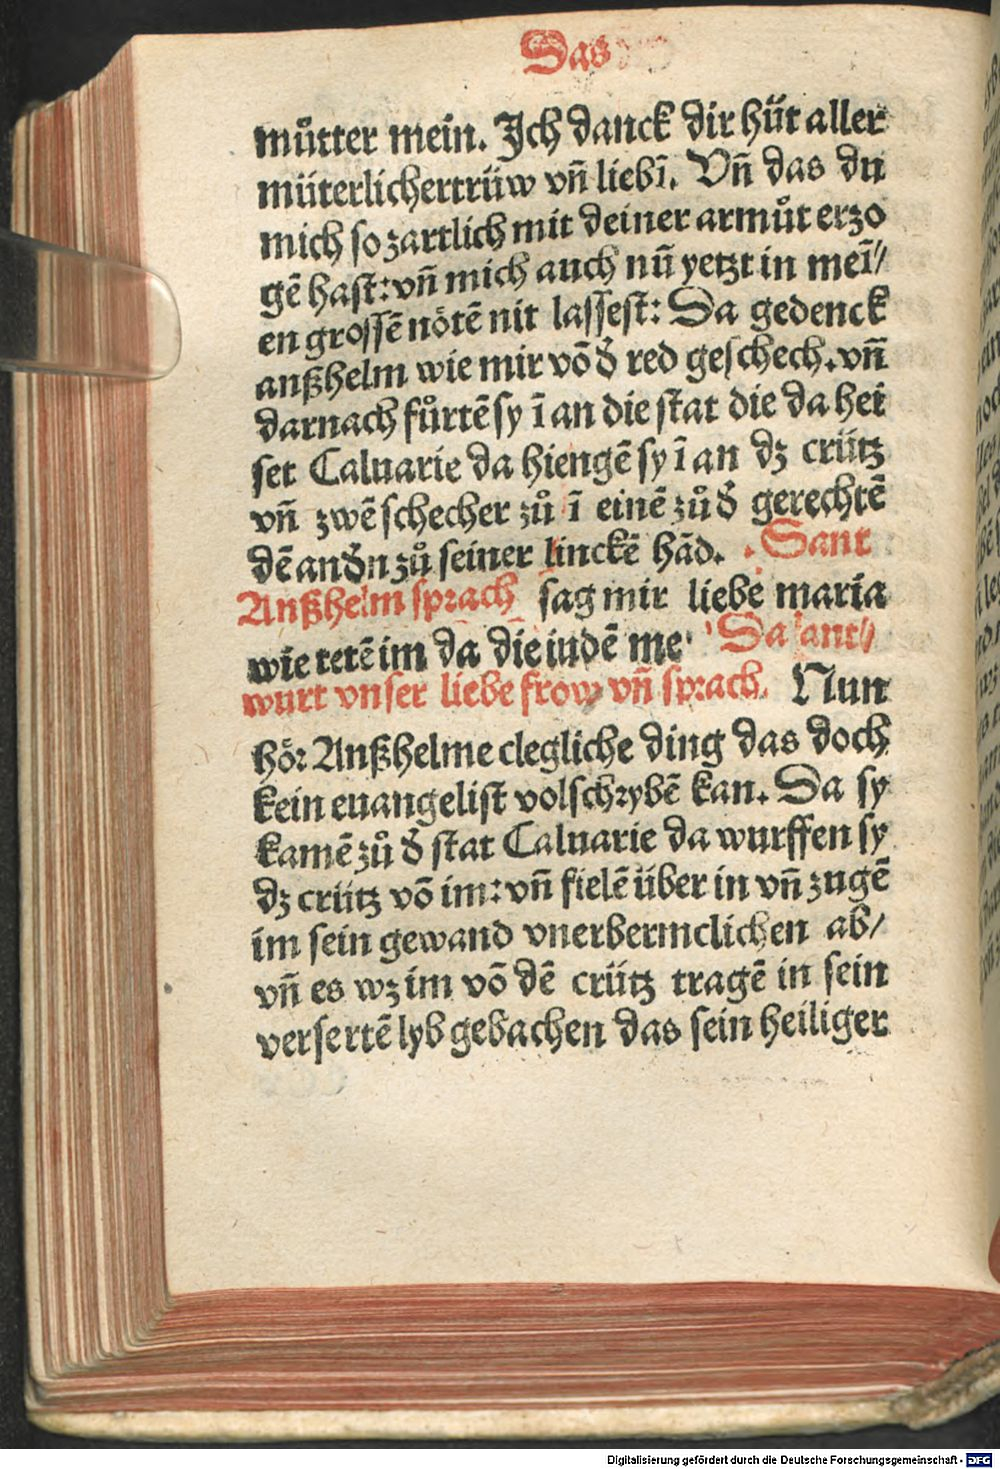 Das
muͦtter mein. Ich danck dir hüt aller
müterlichertrüw vñ liebī. Vñ das du
mich so zartlich mit deiner armuͦt erzo
gē hast: vñ mich auch nū yetzt in meī/
en grossē nötē nit lassest: Da gedenck
anßhelm wie mir vō d̄ red geschech. vñ
darnach fuͦrtē sy ī an die stat die da hei
set Caluarie da hiengē sy ī an dz crütz
vñ zwē schecher zuͦ ī einē zuͦ d̄ gerechtē
dē and̄n zuͦ seiner linckē hād. Sant
Anßhelm sprach sag mir liebe maria
wie tetē im da die iudē me Da ant/
wurt vnser liebe frow vñ sprach. Nun
hör Anßhelme clegliche ding das doch
kein euangelist volschrybē kan. Da sy
kamē zuͦ d̄ stat Caluarie da wurffen sy
dz crütz vō im: vñ fielē über in vñ zugē
im sein gewand vnerbermclichen ab/
vñ es wz im vō dē crütz tragē in sein
versertē lyb gebachen das sein heiliger
Digitalisierung gefördert durch die Deutsche Forschungsgemeinschaft - DFG